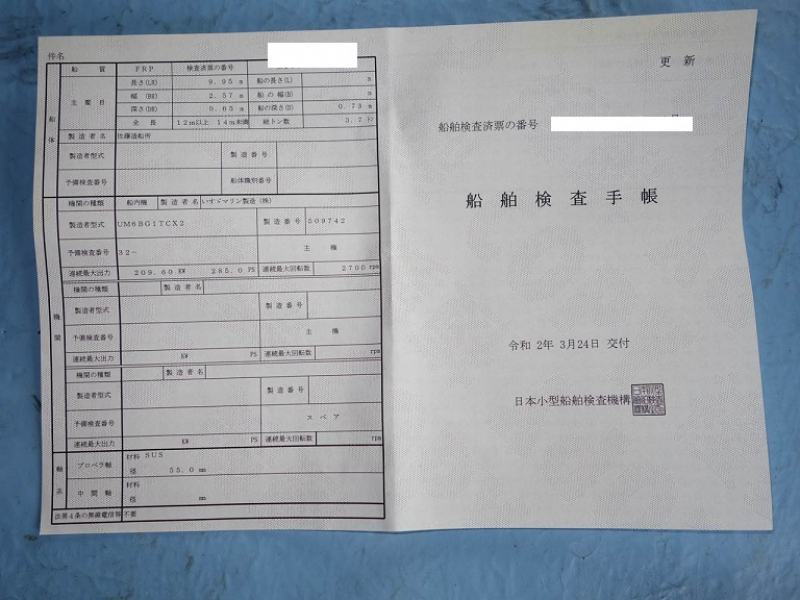 件名
船質 FRP 検査済票の番号
主要目 長さ(LR) 9.95 m 船の長さ(L) m
幅 (BR) 2.57 m 船の幅(B) m
深さ(DR) 0.65 m 船の深さ(D) 0.73 m
全長 12m以上 14m未満 総トン数 3.7 トン
船体
製造者名 佐藤造船所
製造者型式 製造番号
予備検査番号 船体識別番号
機関の種類 船内機 製造者名 いすゞマリン製造(株)
製造者型式 UM6BG1TCX2 製造番号 509742
予備検査番号 32- 主機
連続最大出力 209.60 KW 285.0 PS 連続最大回転数 2700 rpm
機関
機関の種類 製造者名
製造者型式 製造番号
予備検査番号 主機
連続最大出力 KW PS 連続最大回転数 rpm
機関の種類 製造者名
製造者型式 製造番号
予備検査番号 スペア
連続最大出力 KW PS 連続最大回転数 rpm
軸系
プロペラ軸 材料 SUS
径 55.0 mm
中間軸 材料
径 mm
法第4条の無線電信等 不要
更新
船舶検査済票の番号
船舶検査手帳
令和 2年 3月24日 交付
日本小型船舶検査機構